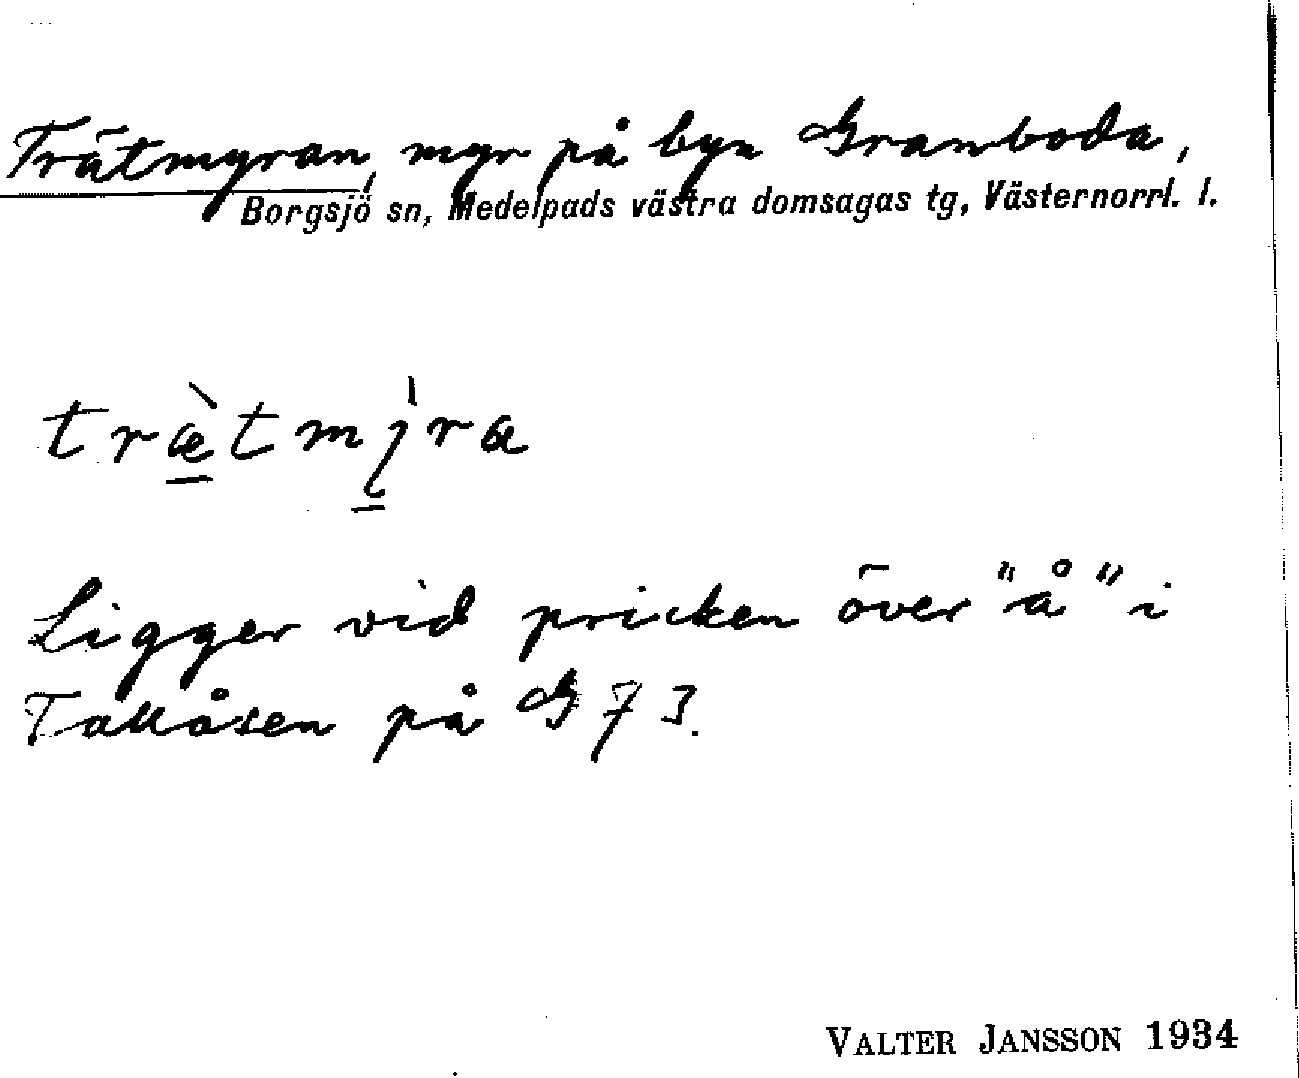 Trätmyran, myr på byn Granboda,
Borgsjö sn, Medelpads västra domsagas tg, Västernorrl. l.
træ̀tmỳra
Ligger vid pricken över "å" i
Tallåsen på G 73.
VALTER JANSSON 1934